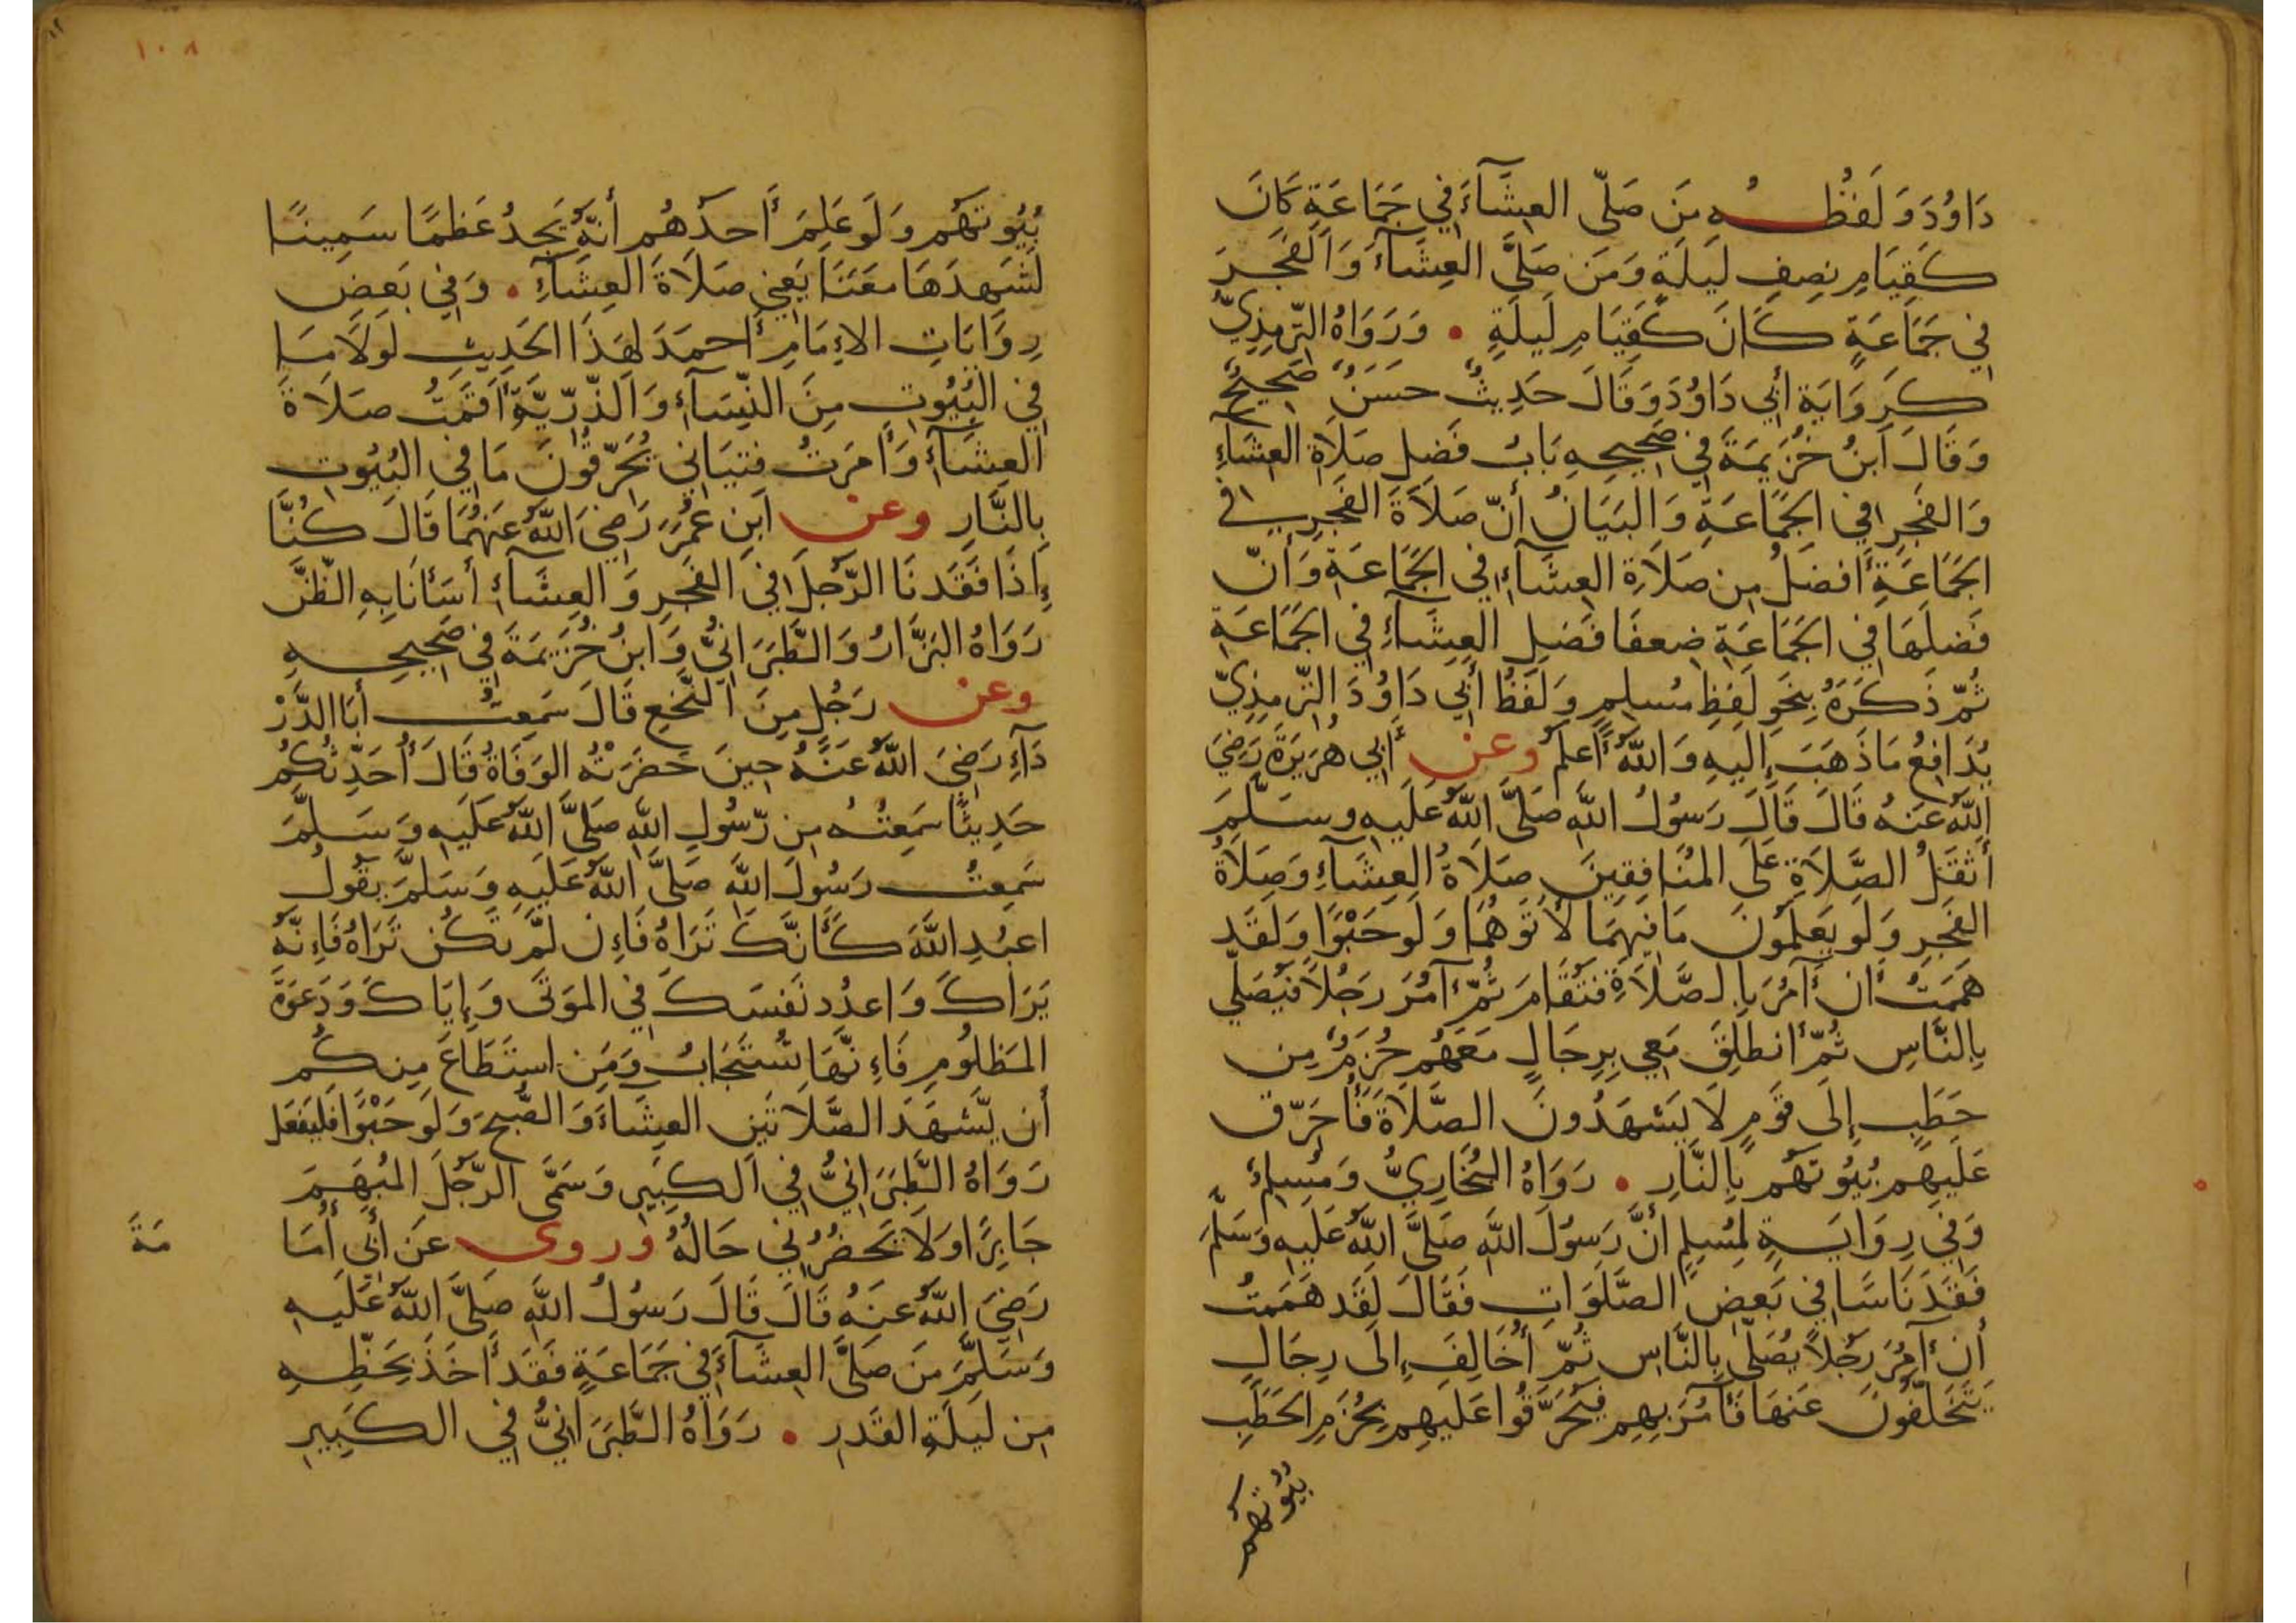 دَاوُدَ وَلَفْظُهُ مَنَ صَلّى العِشَآءَ في جَمَاعَةٍ كَانَ
كَقِيَامِ نِصِفِ لَيلَةٍ وَمَنَ صَلَّى العِشَآءَ وَالفَجرَ
في جَمَاعَةٍ كَانَ كَقِيَامِ لَيلَةٍ • وَرَوَاهُ التّرمِذِيّ
كَرِوَايَةِ أبي دَاوُدَ وَقَالَ حَدِيثٌ حسَنٌ صَحِيحٌ
وَقَالَ ابنُ خُزَيمَةَ في صَحِيحِهِ بَابُ فَضلِ صَلَاةِ العِشَآءِ
وَالفَجرِ في الجَمَاعَةِ وَالبَيَانُ أنّ صَلَاةَ الفَجرِ في
الجَمَاعَةِ أفضَلُ مِن صَلَاةِ العِشَآءِ في الجَمَاعَةِ وَأنّ
فَضلَهَا في الجَمَاعَةِ ضِعفَا فَضلِ العِشَآءِ في الجَمَاعَةِ
ثُمّ ذَكَرَهُ بِنَحوِ لَفظِ مُسلِمٍ وَلَفظُ أبي دَاوُدَ التّرمِذِيّ
يُدَافِعُ مَا ذَهَبَ إِلَيهِ وَاللّهُ أعلَمُ وعن أبي هُرَيرَةَ رَضيَ
اللّهُ عَنهُ قَالَ قَالَ رَسُولُ اللّهِ صَلَّى اللّهُ عَلَيهِ وسَلّمَ
أثقَلُ الصَّلَاةِ عَلَى المُنَافِقِينَ صَلَاةُ العِشَآءِ وَصَلَاةُ
الفَجرِ وَلَو يَعلَمُونَ مَا فِيهِمَا لأَتَوهُمَا وَلَو حَبْوًا وَلَقَد
هَمَمتُ أن آمُرَ بِالصَّلَاةِ فَتُقَامَ ثُمّ آمُرَ رَجُلاً فَيُصَلّي
بِالنَّاسِ ثُمّ أنطَلِقَ مَعي بِرِجَالٍ مَعَهُم حُزَمٌ مِن
حَطَبٍ إِلَى قَومٍ لَا يَشهَدُونَ الصَّلَاةَ فَأُحَرّقَ
عَلَيهِم بُيُوتَهُم بِالنَّارِ • رَوَاهُ البُخَارِيُّ وَمُسلِمٌ
وَفي رِوَايَةٍ لِمُسلِمٍ أنَّ رَسُولَ اللّهِ صَلَّى اللّهُ عَلَيهِ وَسَلَّمَ
فَقَدَ نَاسًا في بَعضِ الصَّلَوَاتِ فَقَالَ لَقَد هَمَمتُ
أن آمُرَ رَجُلاً يُصَلّي بِالنَّاسِ ثُمّ أُخَالِفَ إِلَى رِجَالٍ
يَتَخَلّفُونَ عَنهَا فَآمُرَ بِهِم فَيُحَرَّقُوا عَلَيهِم بِحُزَمِ الحَطَبِ
بُيُوتَهُم
١٠٨
بُيُوتَهُم وَلَو عَلِمَ أَحدُهُم أنَّهُ يَجِدُ عَظمًا سَمِينًا
لَشَهِدَهَا مَعَنَا يَعني صَلَاةَ العِشَآءِ • وَفي بَعضِ
رِوَايَاتِ الإِمَامِ أَحمَدَ لِهَذَا الحَدِيثِ لَولَا مَا
في البُيُوتِ مِنَ النِّسَآءِ وَالذّرّيَّةِ أقَمتُ صَلَاةَ
العِشَآءِ وَأَمَرتُ فِتيَاني يُحَرّقُونَ مَا في البُيُوتِ
بِالنَّارِ وعن ابنِ عُمَرَ رَضيَ اللّهُ عَنهُمَا قَالَ كُنَّا
إِذَا فَقَدنَا الرَّجُلَ في الفَجرِ وَالعِشَآءِ أسَأنَا بِهِ الظَّنَّ
رَوَاهُ البَزَّارُ وَالطَّبَرَانيُّ وَابنُ خُزَيمَةَ في صَحِيحِهِ
وعن رَجُلٍ مِنَ النَّخَعِ قَالَ سَمِعتُ أبَا الدَّرْ
دَآءِ رَضيَ اللّهُ عَنهُ حِينَ حَضَرَتْهُ الوَفَاةُ قَالَ أُحَدّثُكُم
حَدِيثًا سَمِعتُهُ مِن رّسُولِ اللّهِ صَلَّى اللّهُ عَلَيهِ وَسَلّمَ
سَمِعتُ رَسُولَ اللّهِ صَلَّى اللّهُ عَلَيهِ وَسَلّمَ يَقُولُ
اعبُدِ اللّهَ كَأَنَّكَ تَرَاهُ فَإِن لّم تَكُن تَرَاهُ فَإِنّهُ
يَرَاكَ وَاعدُد نَفسَكَ في المَوتَى وَإِيّاكَ وَدَعوَةَ
المَظلُومِ فَإِنَّهَا تُستَجَابُ وَمَنِ استَطَاعَ مِنكُم
أن يَّشهَدَ الصَّلَاتَينِ العِشَآءَ وَالصُّبحَ وَلَو حَبْوًا فَليَفعَل
رَوَاهُ الطَّبَرَانيُّ في الكَبِيرِ وَسَمَّى الرَّجُلَ المُبهَمَ
جَابِرًا وَلَا يَحضُرُني حَالُهُ وروى عَن أبي أُمَا
مَةَ
رَضيَ اللّهُ عَنهُ قَالَ قَالَ رَسُولُ اللّهِ صَلَّى اللّهُ عَلَيهِ
وَسَلّمَ مَن صَلَّى العِشَآءَ في جَمَاعَةٍ فَقَد أَخَذَ بِحَظِّهِ
مِن لَيلَةِ القَدرِ • رَوَاهُ الطَّبَرَانيُّ في الكَبِيرِ